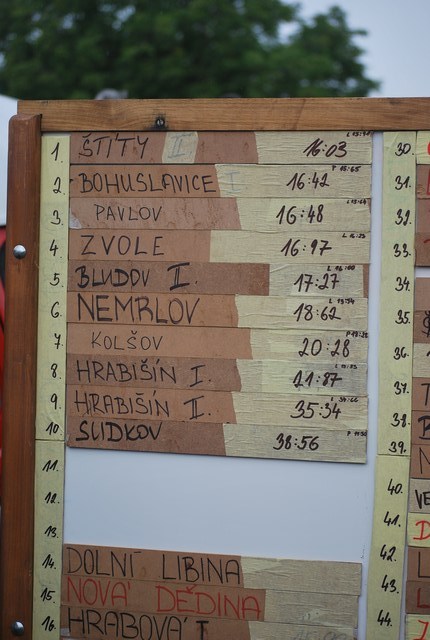 1. ŠTÍTY II 16:03
2. BOHUSLAVICE I 16:42
3. PAVLOV 16:48
4. ZVOLE 16:97
5. BLUDOV II. 17:27
6. NEMRLOV 18:62
7. KOLŠOV 20:28
8. HRABIŠÍN I. 21:87
9. HRABIŠÍN II. 35:34
10 SUDKOV 38:56
11.
12.
13.
14. DOLNÍ LIBINA
15. NOVÁ DĚDINA
16. HRABOVÁ I
30.
31.
32.
33.
34.
35.
36.
37.
38.
39.
40.
41.
42.
43.
44.